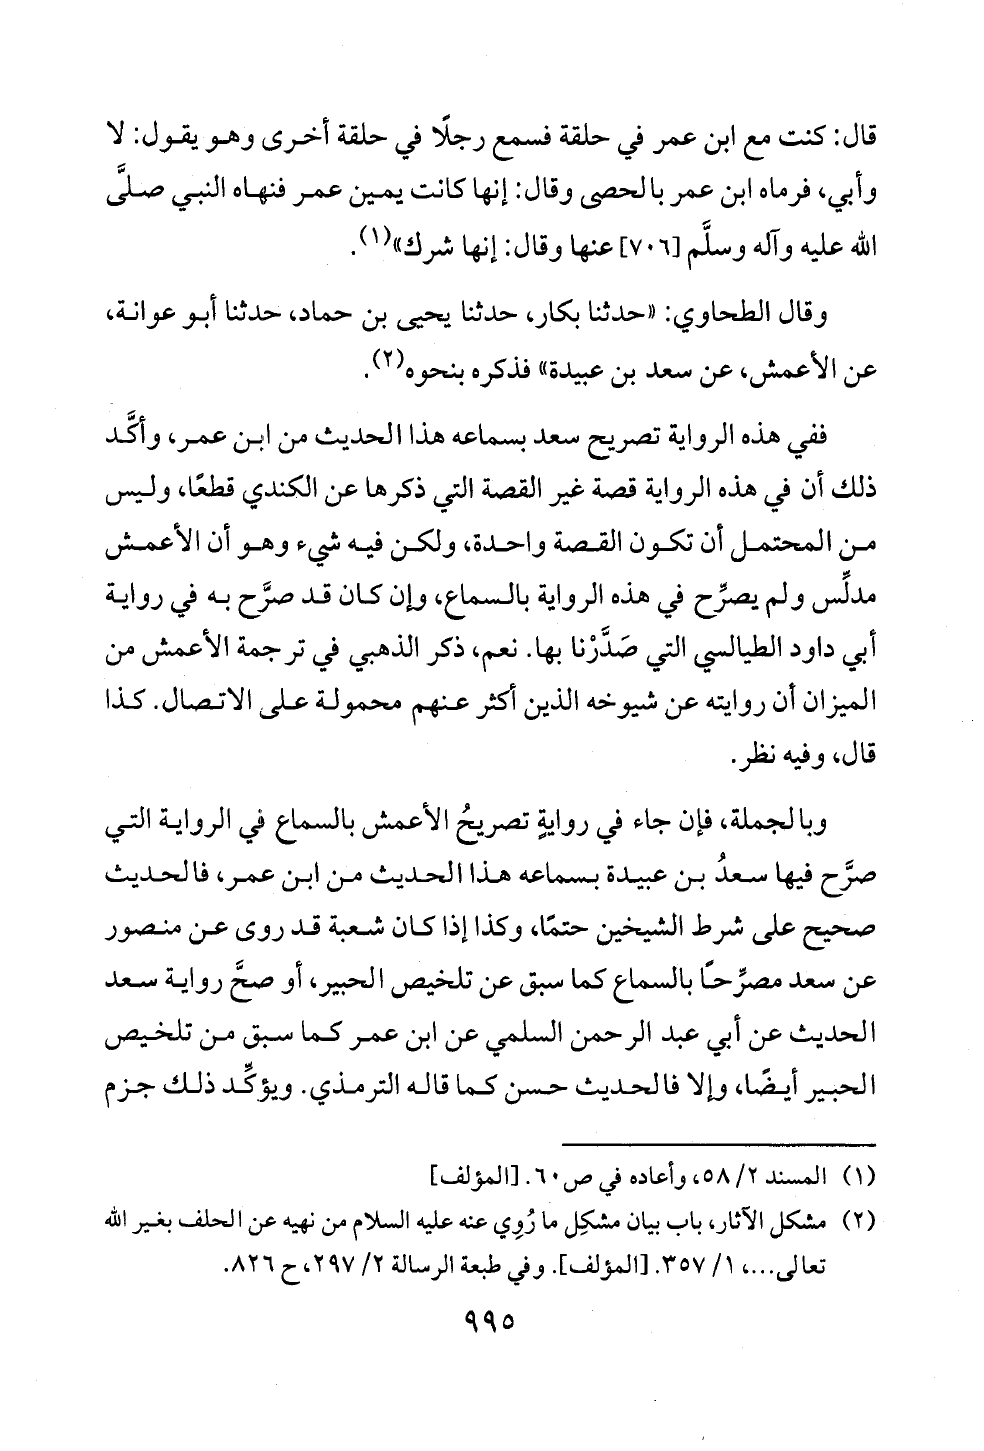 قال: كنت مع ابن عمر في حلقة فسمع رجلًا في حلقة أخرى وهو يقول: لا
وأبي، فرماه ابن عمر بالحصى وقال: إنها كانت يمين عمر فنهاه النبي صلَّى
الله عليه وآله وسلَّم [٧٠٦] عنها وقال: إنها شرك»(١).
وقال الطحاوي: «حدثنا بكار، حدثنا يحيى بن حماد، حدثنا أبو عوانة،
عن الأعمش، عن سعد بن عبيدة» فذكره بنحوه(٢).
ففي هذه الرواية تصريح سعد بسماعه هذا الحديث من ابن عمر، وأكَّد
ذلك أن في هذه الرواية قصة غير القصة التي ذكرها عن الكندي قطعًا، وليس
من المحتمل أن تكون القصة واحدة، ولكن فيه شيء وهو أن الأعمش
مدلِّس ولم يصرِّح في هذه الرواية بالسماع، وإن كان قد صرَّح به في رواية
أبي داود الطيالسي التي صَدَّرْنا بها. نعم، ذكر الذهبي في ترجمة الأعمش من
الميزان أن روايته عن شيوخه الذين أكثر عنهم محمولة على الاتصال. كذا
قال، وفيه نظر.
وبالجملة، فإن جاء في روايةٍ تصريحُ الأعمش بالسماع في الرواية التي
صرَّح فيها سعدُ بن عبيدة بسماعه هذا الحديث من ابن عمر، فالحديث
صحيح على شرط الشيخين حتمًا، وكذا إذا كان شعبة قد روى عن منصور
عن سعد مصرِّحًا بالسماع كما سبق عن تلخيص الحبير، أو صحَّ رواية سعد
الحديث عن أبي عبد الرحمن السلمي عن ابن عمر كما سبق من تلخيص
الحبير أيضًا، وإلا فالحديث حسن كما قاله الترمذي. ويؤكِّد ذلك جزم
(١) المسند ٢/ ٥٨، وأعاده في ص٦٠. [المؤلف]
(٢) مشكل الآثار، باب بيان مشكِل ما رُوِي عنه عليه السلام من نهيه عن الحلف بغير الله
تعالى...، ١/ ٣٥٧. [المؤلف]. وفي طبعة الرسالة ٢/ ٢٩٧، ح ٨٢٦.
٩٩٥